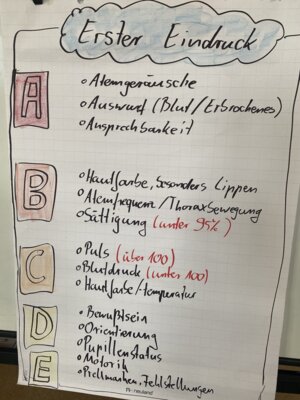 Erster Eindruck
A
o Atemgeräusche
o Auswurf (Blut/Erbrochenes)
o Ansprechbarkeit
B
o Hautfarbe, besonders Lippen
o Atemfrequenz/Thoraxbewegung
o Sättigung (unter 95%)
C
o Puls (über 100)
o Blutdruck (unter 100)
o Hautfarbe/-temperatur
D
o Bewußtsein
o Orientierung
o Pupillenstatus
o Motorik
E
o Prellmarken, Fehlstellungen
neuland